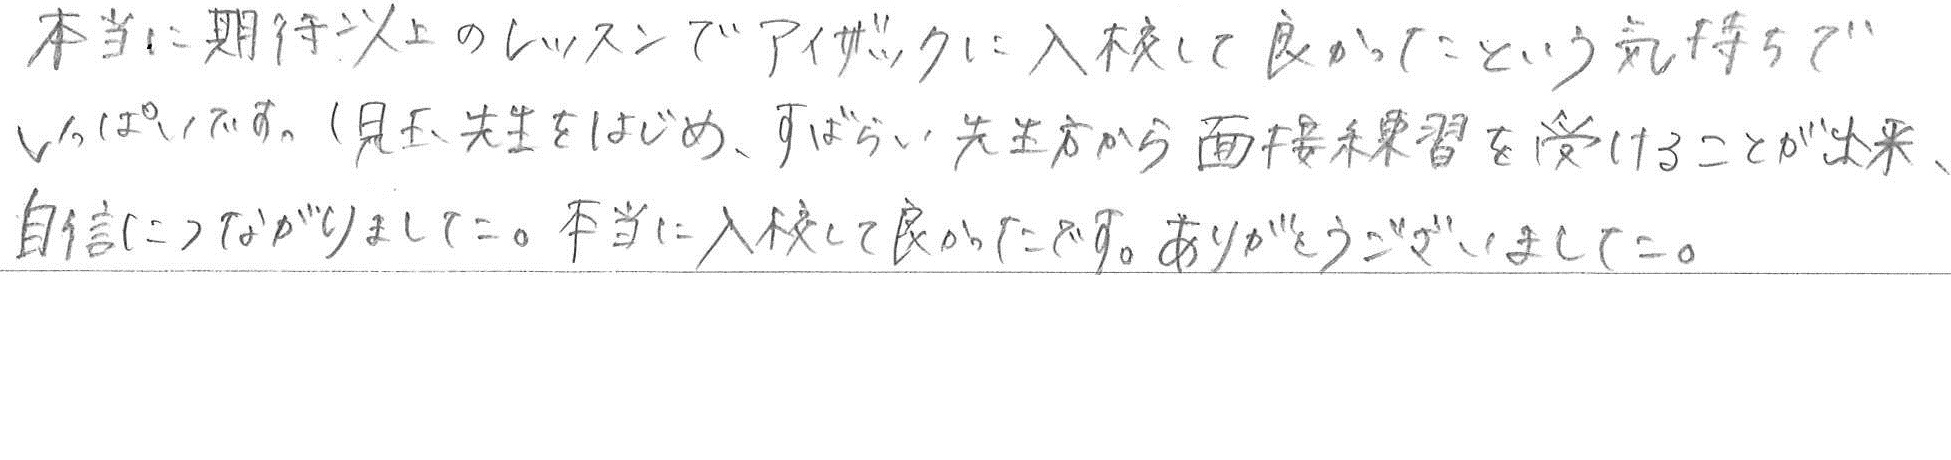 本当に期待以上のレッスンでアイザックに入校して良かったという気持ちで
いっぱいです。児玉先生をはじめ、すばらい先生方から面接練習を受けることが出来、
自信につながりました。本当に入校して良かったです。ありがとうございました。